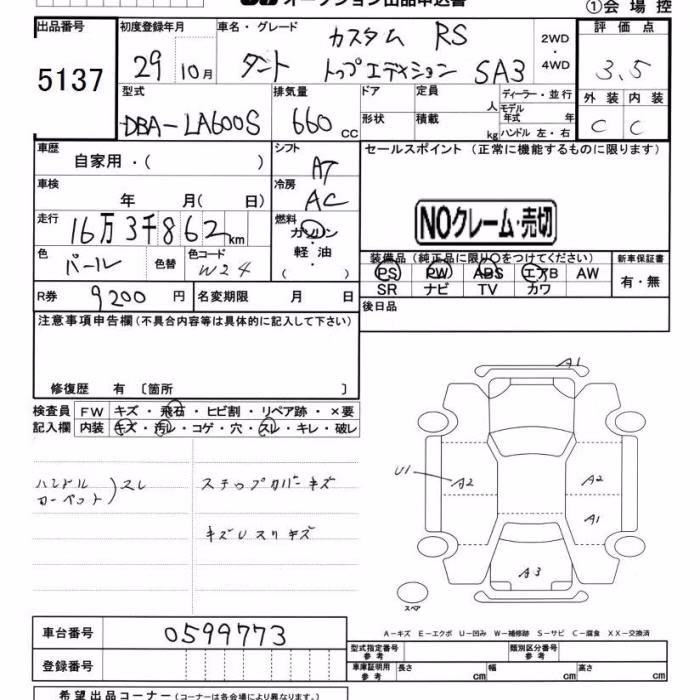 オークション出品申込書
①会場控
出品番号
5137
初度登録年月
29 10月
車名・グレード
カスタム RS
タント トップエディション SA3
2WD
・
4WD
評価点
3.5
外装 内装
C C
型式
DBA-LA600S
排気量
660 cc
ドア
定員
人
形状
積載
kg
ディーラー・並行
モデル
年式 年
ハンドル 左・右
車歴
自家用・( )
シフト
AT
車検
年 月( 日)
冷房
AC
走行
16万3千862km
燃料
ガソリン
・
軽油
( )
色
パール
色替
色コード
W24
R券
9200 円
名変期限 月 日
セールスポイント (正常に機能するものに限ります)
NOクレーム・売切
装備品 (純正品に限り○をつけてください)
PS PW ABS エアB AW
SR ナビ TV カワ
新車保証書
有・無
後日品
注意事項申告欄 (不具合内容等は具体的に記入して下さい)
修復歴 有 〔箇所 〕
検査員
記入欄
FW キズ・飛石・ヒビ割・リペア跡・×要
内装 キズ・汚レ・コゲ・穴・スレ・キレ・破レ
ハンドル
カーペット)スレ
ステップカバーキズ
A1
U1
A2
A2
A1
A3
スペア
A-キズ E-エクボ U-凹み W-補修跡 S-サビ C-腐食 XX-交換済
車台番号
0599773
登録番号
型式指定番号
参考
類別区分番号
参考
車庫証明用
参考
長さ cm
幅 cm
高さ cm
希望出品コーナー (コーナーは各会場により異なります。)